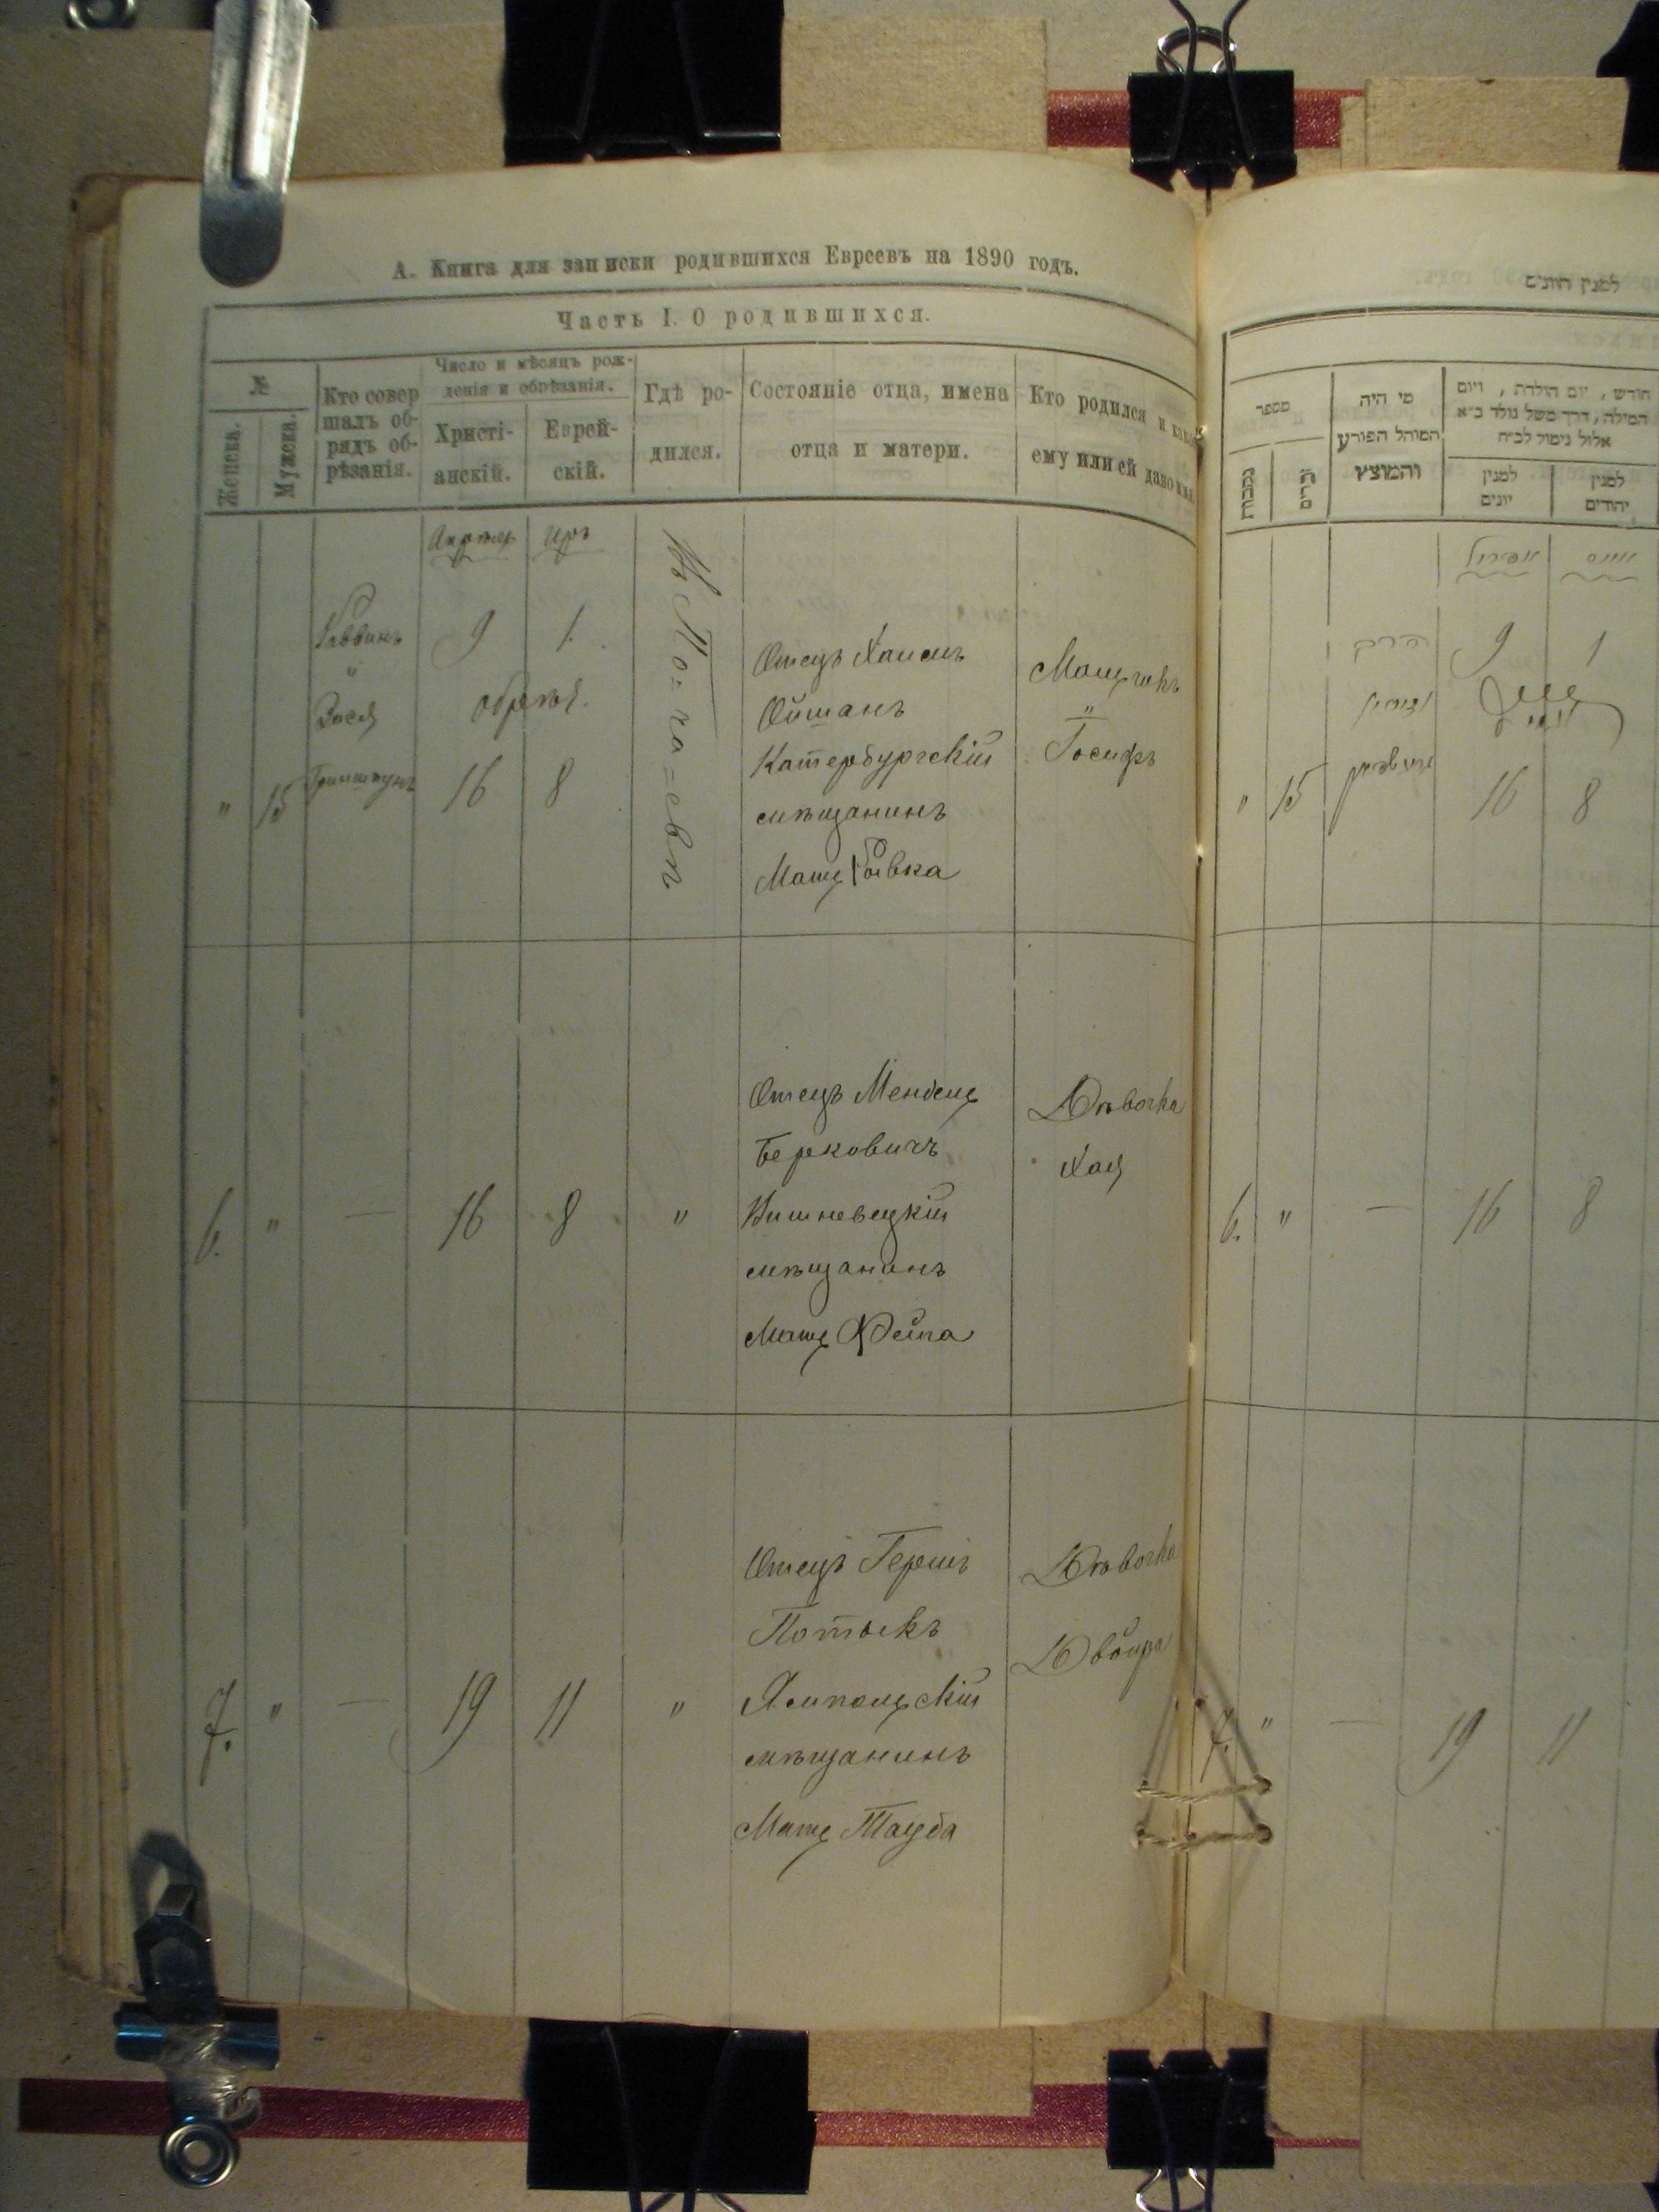 А. Книга для записки родившихся Евреевъ на 1890 годъ.
Часть I. О родившихся.
№
Женска.
Мужска.
Кто совер
шалъ об-
рядъ об-
рѣзанія.
Число и мѣсяцъ рож-
денія и обрѣзанія.
Христі-
анскій.
Еврей-
скій.
Гдѣ ро-
дился.
Состояніе отца, имена
отца и матери.
Кто родился и како
ему или ей дано имя
Апрѣль
Иръ
Раввинъ
"
Зися
Гринштунъ
" 15
9 1.
обрѣз.
16 8
въ По-
ча-евѣ
Отецъ Хаимъ
Ойшанъ
Катербургскій
мѣщанинъ
Мать Ривка
Мальчикъ
"
Іосифъ
6. " — 16 8 "
Отецъ Мендель
Берковичъ
Вишневецкій
мѣщанинъ
Мать Фейга
Дѣвочка
Хая
7. " — 19 11 "
Отецъ Гершъ
Потыкъ
Ямпольскій
мѣщанинъ
Мать Тауба
Дѣвочка
Двойра
למנין היונים
מספר
נקבות
זכרים
מי היה
המוהל הפורע
והמוצץ
חודש, יום הולדת, ויום
המילה, דרך משל נולד כ״א
אלול נימול לכ״ח
למנין
יונים
למנין
יהודים
אפריל
אייר
9 1
" 15
16 8
6. " — 16 8
7. " — 19 11